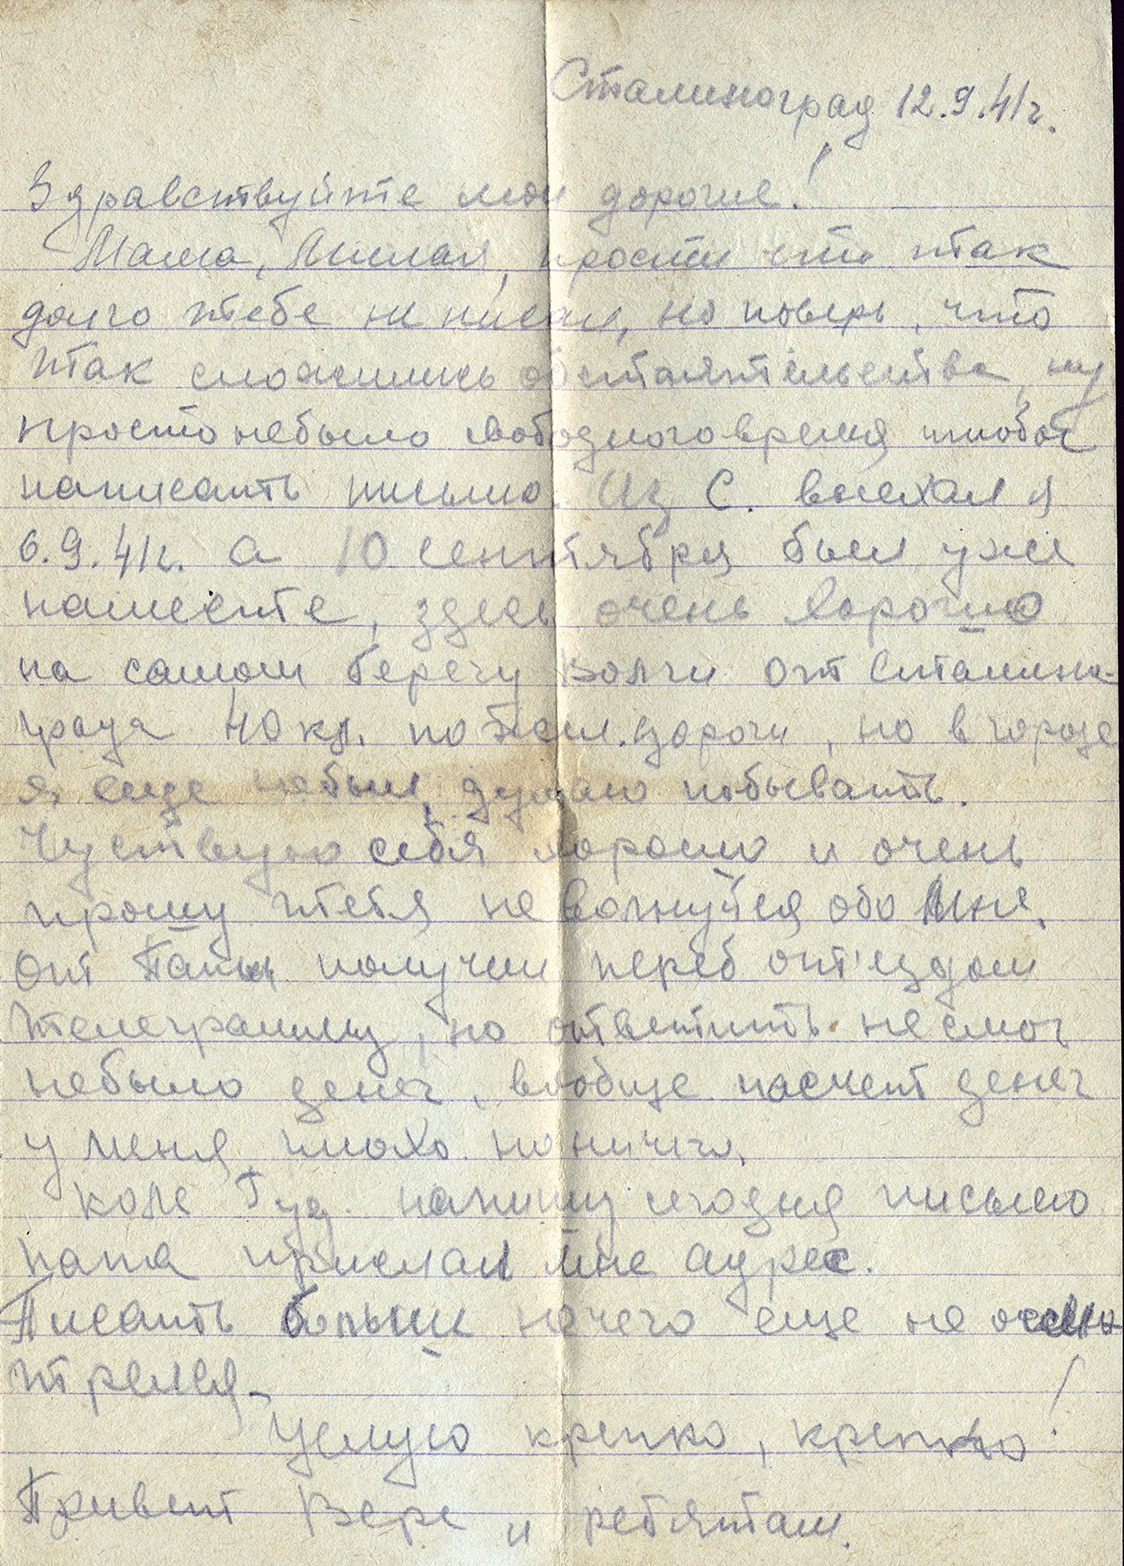 Сталиноград 12.9.41г.
Здравствуйте мои дорогие!
Мама, Милая, прости что так
долго тебе не писал, но поверь, что
так сложились обстаятельства, ну
просто небыло свободного время чтобы
написать письмо. Из С. выехал я
6.9.41г. а 10 сентября был уже
наместе, здесь очень хорошо
на самом берегу Волги от Сталино-
града 40 кл. по жел. дороги, но в городе
я еще небыл, думаю побывать.
Чуствую себя хорошо и очень
прошу тебя не волнуйся обо мне.
От Папы получил перед от'ездом
телеграмму, но ответить не смог
небыло денег, вообще насчет денег
у меня плохо. но ничего.
Коле Гуд. напишу сегодня письмо
папа прислал мне адрес.
Писать больше нечего еще не осмо-
трелся.
Целую крепко, крепко!
Привет Вере и ребятам.